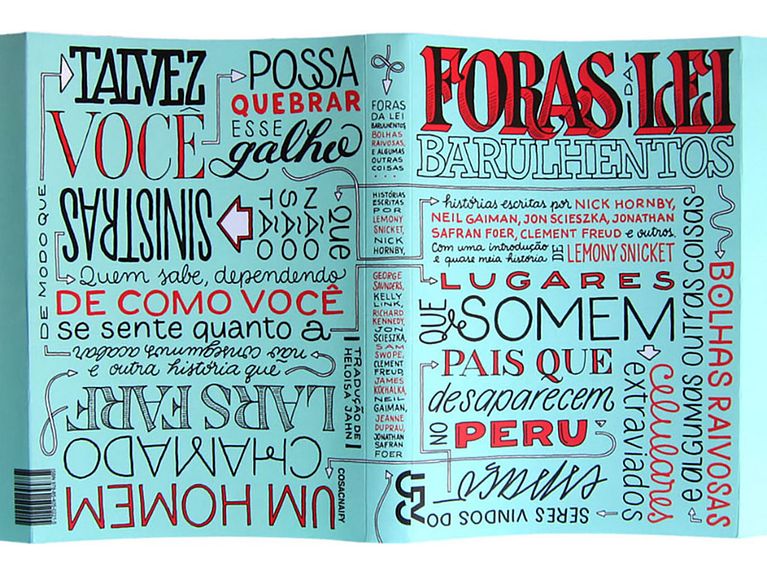 TALVEZ
VOCÊ
POSSA
QUEBRAR
ESSE
galho
DE MODO QUE
SINISTRAS
QUE
NÃO
SÃO
TÃO
Quem sabe, dependendo
DE COMO VOCÊ
se sente quanto a
não conseguimos acabar
e outra história que
LARS FARF
CHAMADO
UM HOMEM
TRADUÇÃO DE
HELOISA JAHN
COSACNAIFY
FORAS
DA LEI
BARULHENTOS
BOLHAS
RAIVOSAS,
E ALGUMAS
OUTRAS
COISAS
...
HISTÓRIAS
ESCRITAS
POR
LEMONY
SNICKET,
NICK
HORNBY,
GEORGE
SAUNDERS,
KELLY
LINK,
RICHARD
KENNEDY,
JON
SCIESZKA,
SAM
SWOPE,
CLEMENT
FREUD,
JAMES
KOCHALKA,
NEIL
GAIMAN,
JEANNE
DUPRAU,
JONATHAN
SAFRAN
FOER
FORAS DA LEI
BARULHENTOS
histórias escritas por NICK HORNBY,
NEIL GAIMAN, JON SCIESZKA, JONATHAN
SAFRAN FOER, CLEMENT FREUD e outros.
Com uma introdução
e quase meia história DE LEMONY SNICKET
LUGARES
QUE SOMEM
PAIS QUE
desaparecem
NO PERU
celulares
extraviados
SERES VINDOS DO
BOLHAS RAIVOSAS
e algumas outras coisas